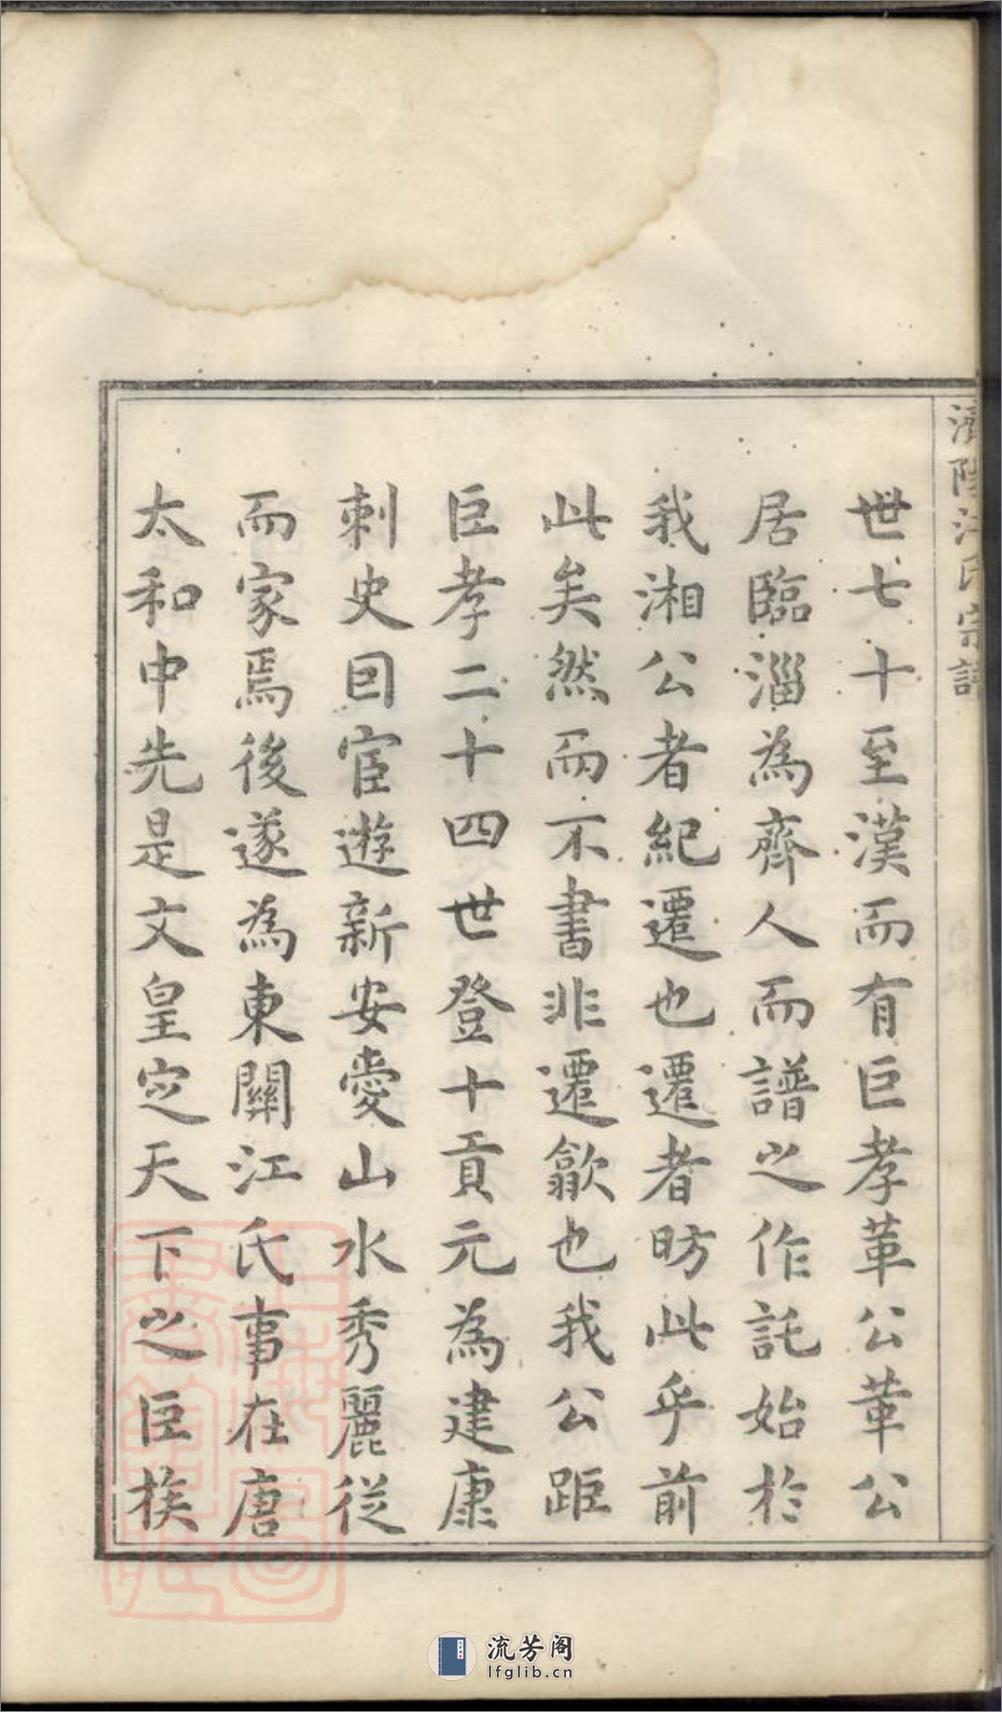 濟陽江氏宗譜
世七十至漢而有巨孝革公革公
居臨淄為齊人而譜之作託始於
我湘公者紀遷也遷者昉此乎前
此矣然而不書非遷歙也我公距
巨孝二十四世登十貢元為建康
刺史囙宦遊新安愛山水秀麗從
而家焉後遂為東關江氏事在唐
太和中先是文皇定天下之巨族
上海圖書館藏
流芳阁
lfglib.cn